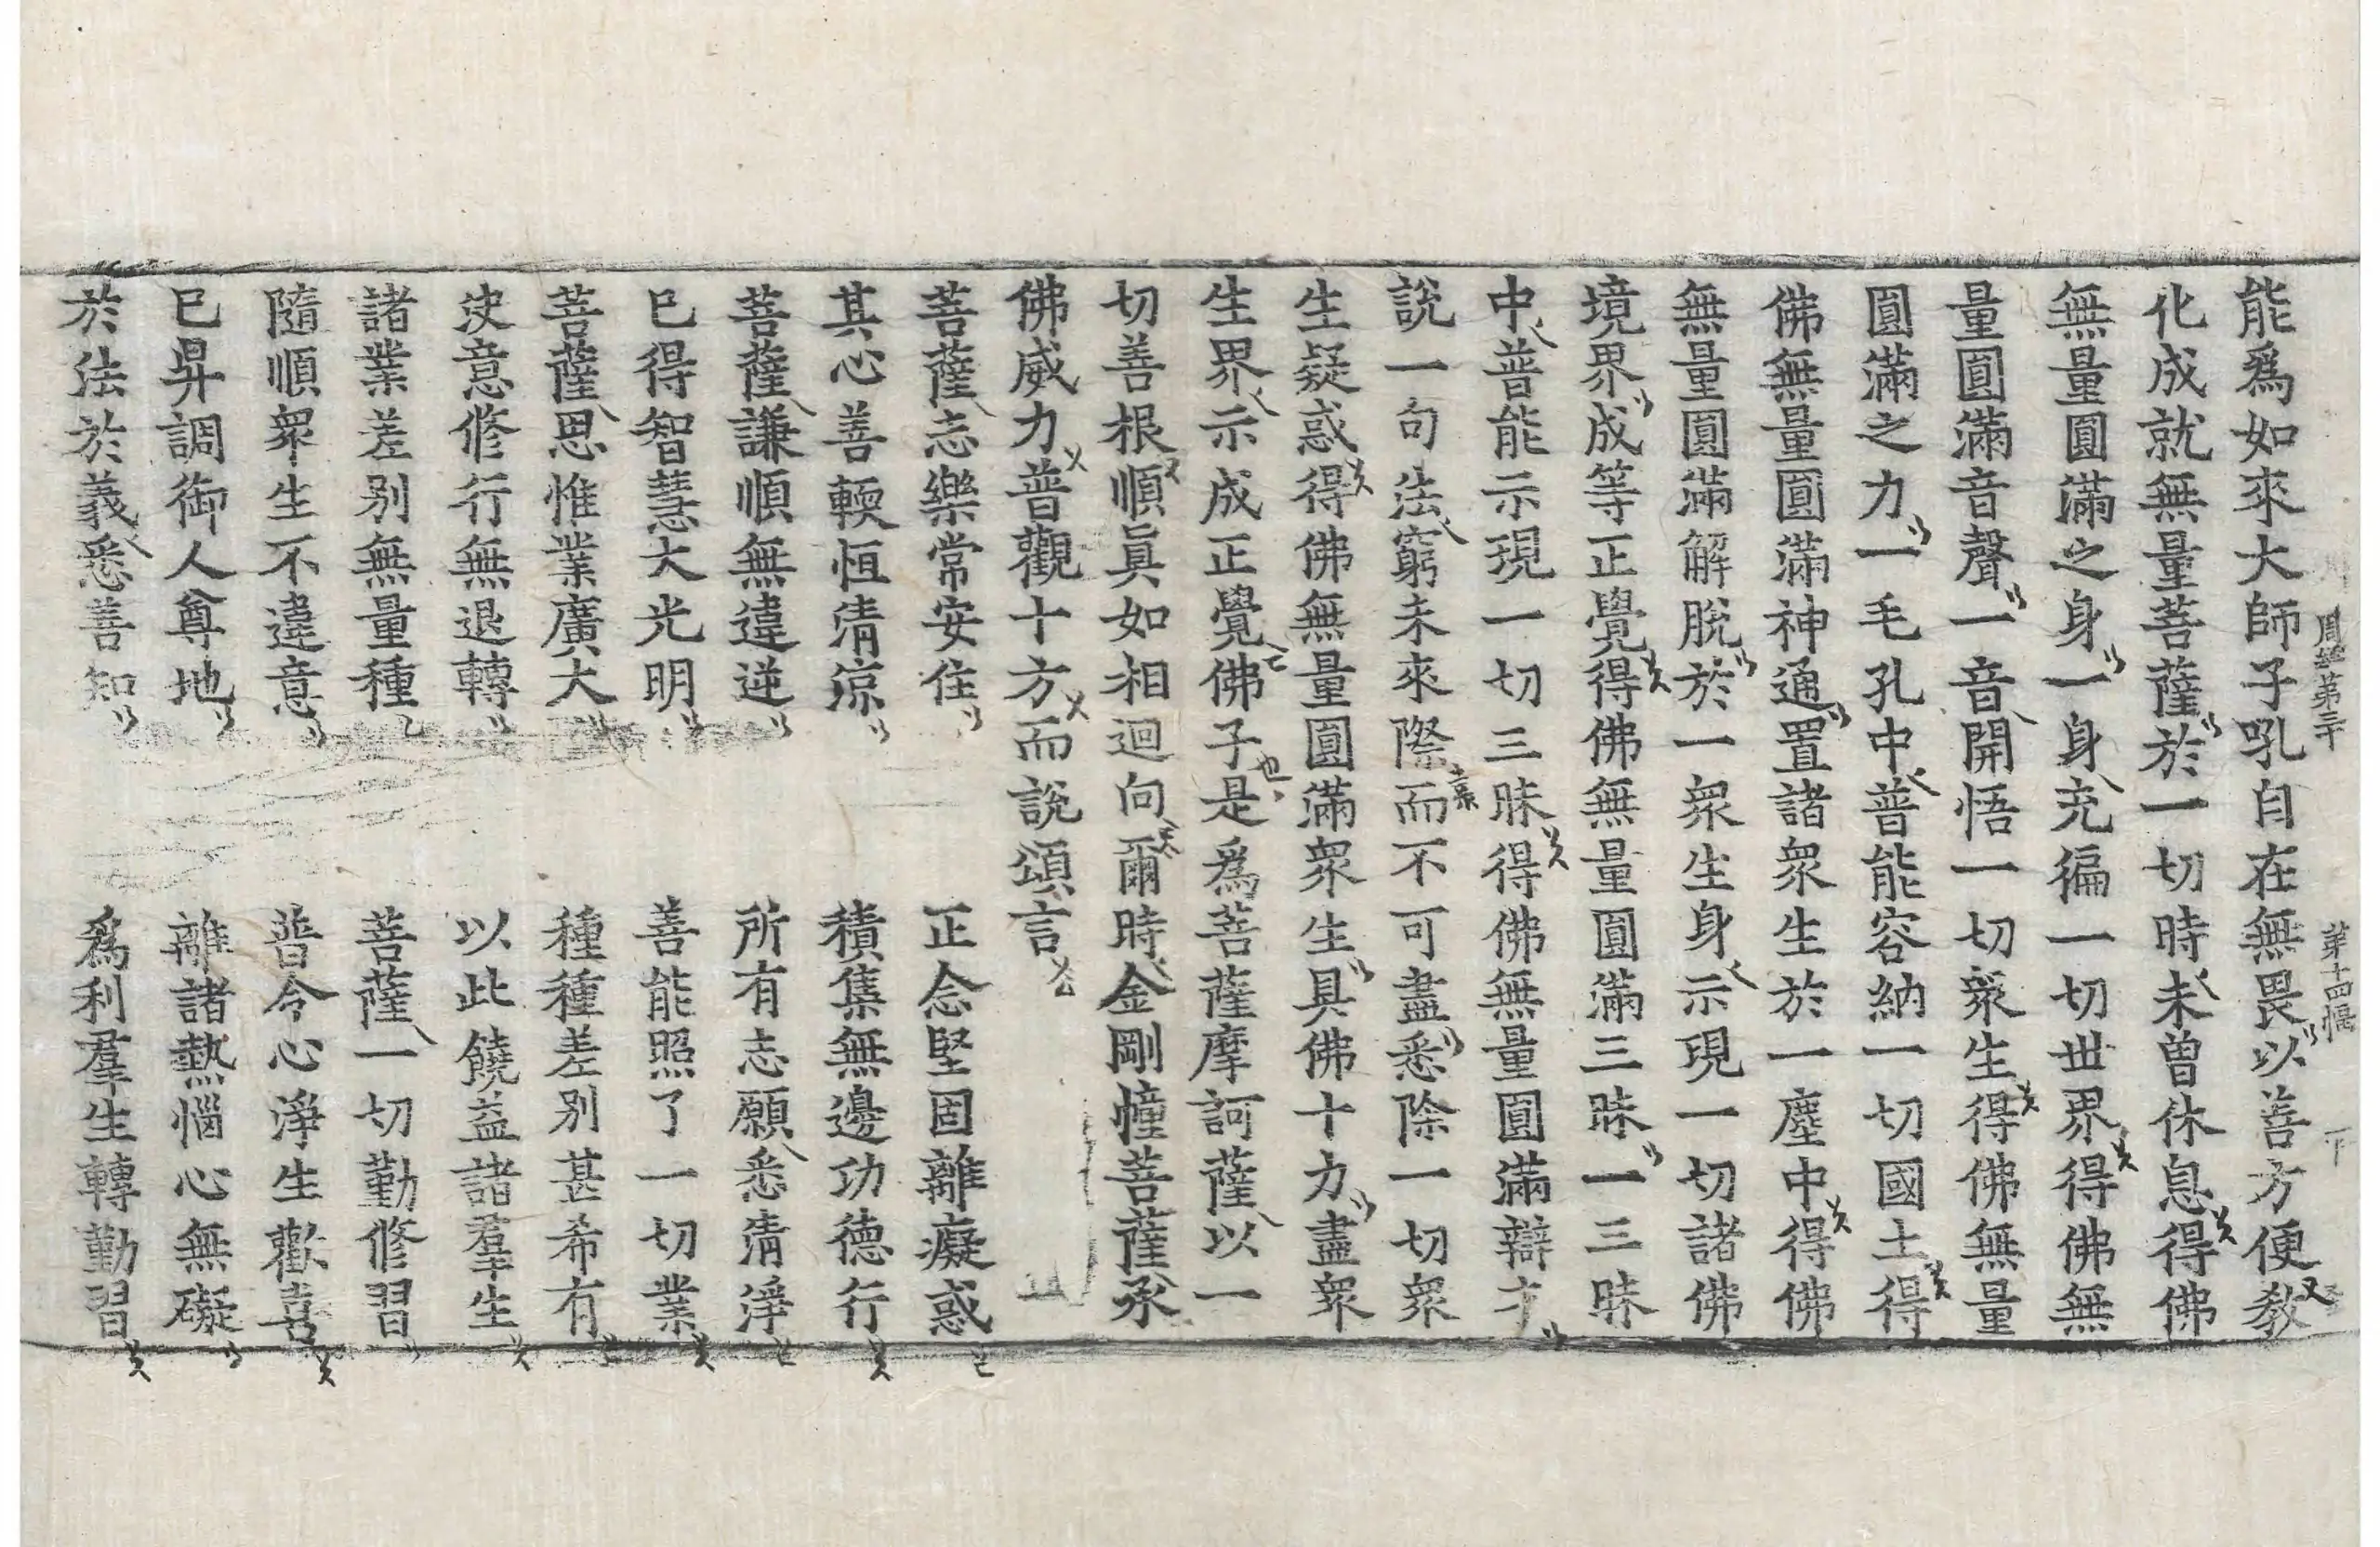 周經第三十　第十四幅　下
能爲如來大師子吼自在無畏以善方便教
化成就無量菩薩於一切時未曾休息得佛
無量圓滿之身一身充徧一切世界得佛無
量圓滿音聲一音開悟一切衆生得佛無量
圓滿之力一毛孔中普能容納一切國土得
佛無量圓滿神通置諸衆生於一塵中得佛
無量圓滿解脫於一衆生身示現一切諸佛
境界成等正覺得佛無量圓滿三昧一三昧
中普能示現一切三昧得佛無量圓滿辯才
說一句法窮未來際而不可盡悉除一切衆
生疑惑得佛無量圓滿衆生具佛十力盡衆
生界示成正覺佛子是爲菩薩摩訶薩以一
切善根順眞如相迴向爾時金剛幢菩薩承
佛威力普觀十方而說頌言
菩薩志樂常安住　正念堅固離癡惑
其心善輭恒清涼　積集無邊功德行
菩薩謙順無違逆　所有志願悉清淨
已得智慧大光明　善能照了一切業
菩薩思惟業廣大　種種差別甚希有
决意修行無退轉　以此饒益諸羣生
諸業差別無量種　菩薩一切勤修習
隨順衆生不違意　普令心淨生歡喜
已昇調御人尊地　離諸熱惱心無礙
於法於義悉善知　爲利羣生轉勤習